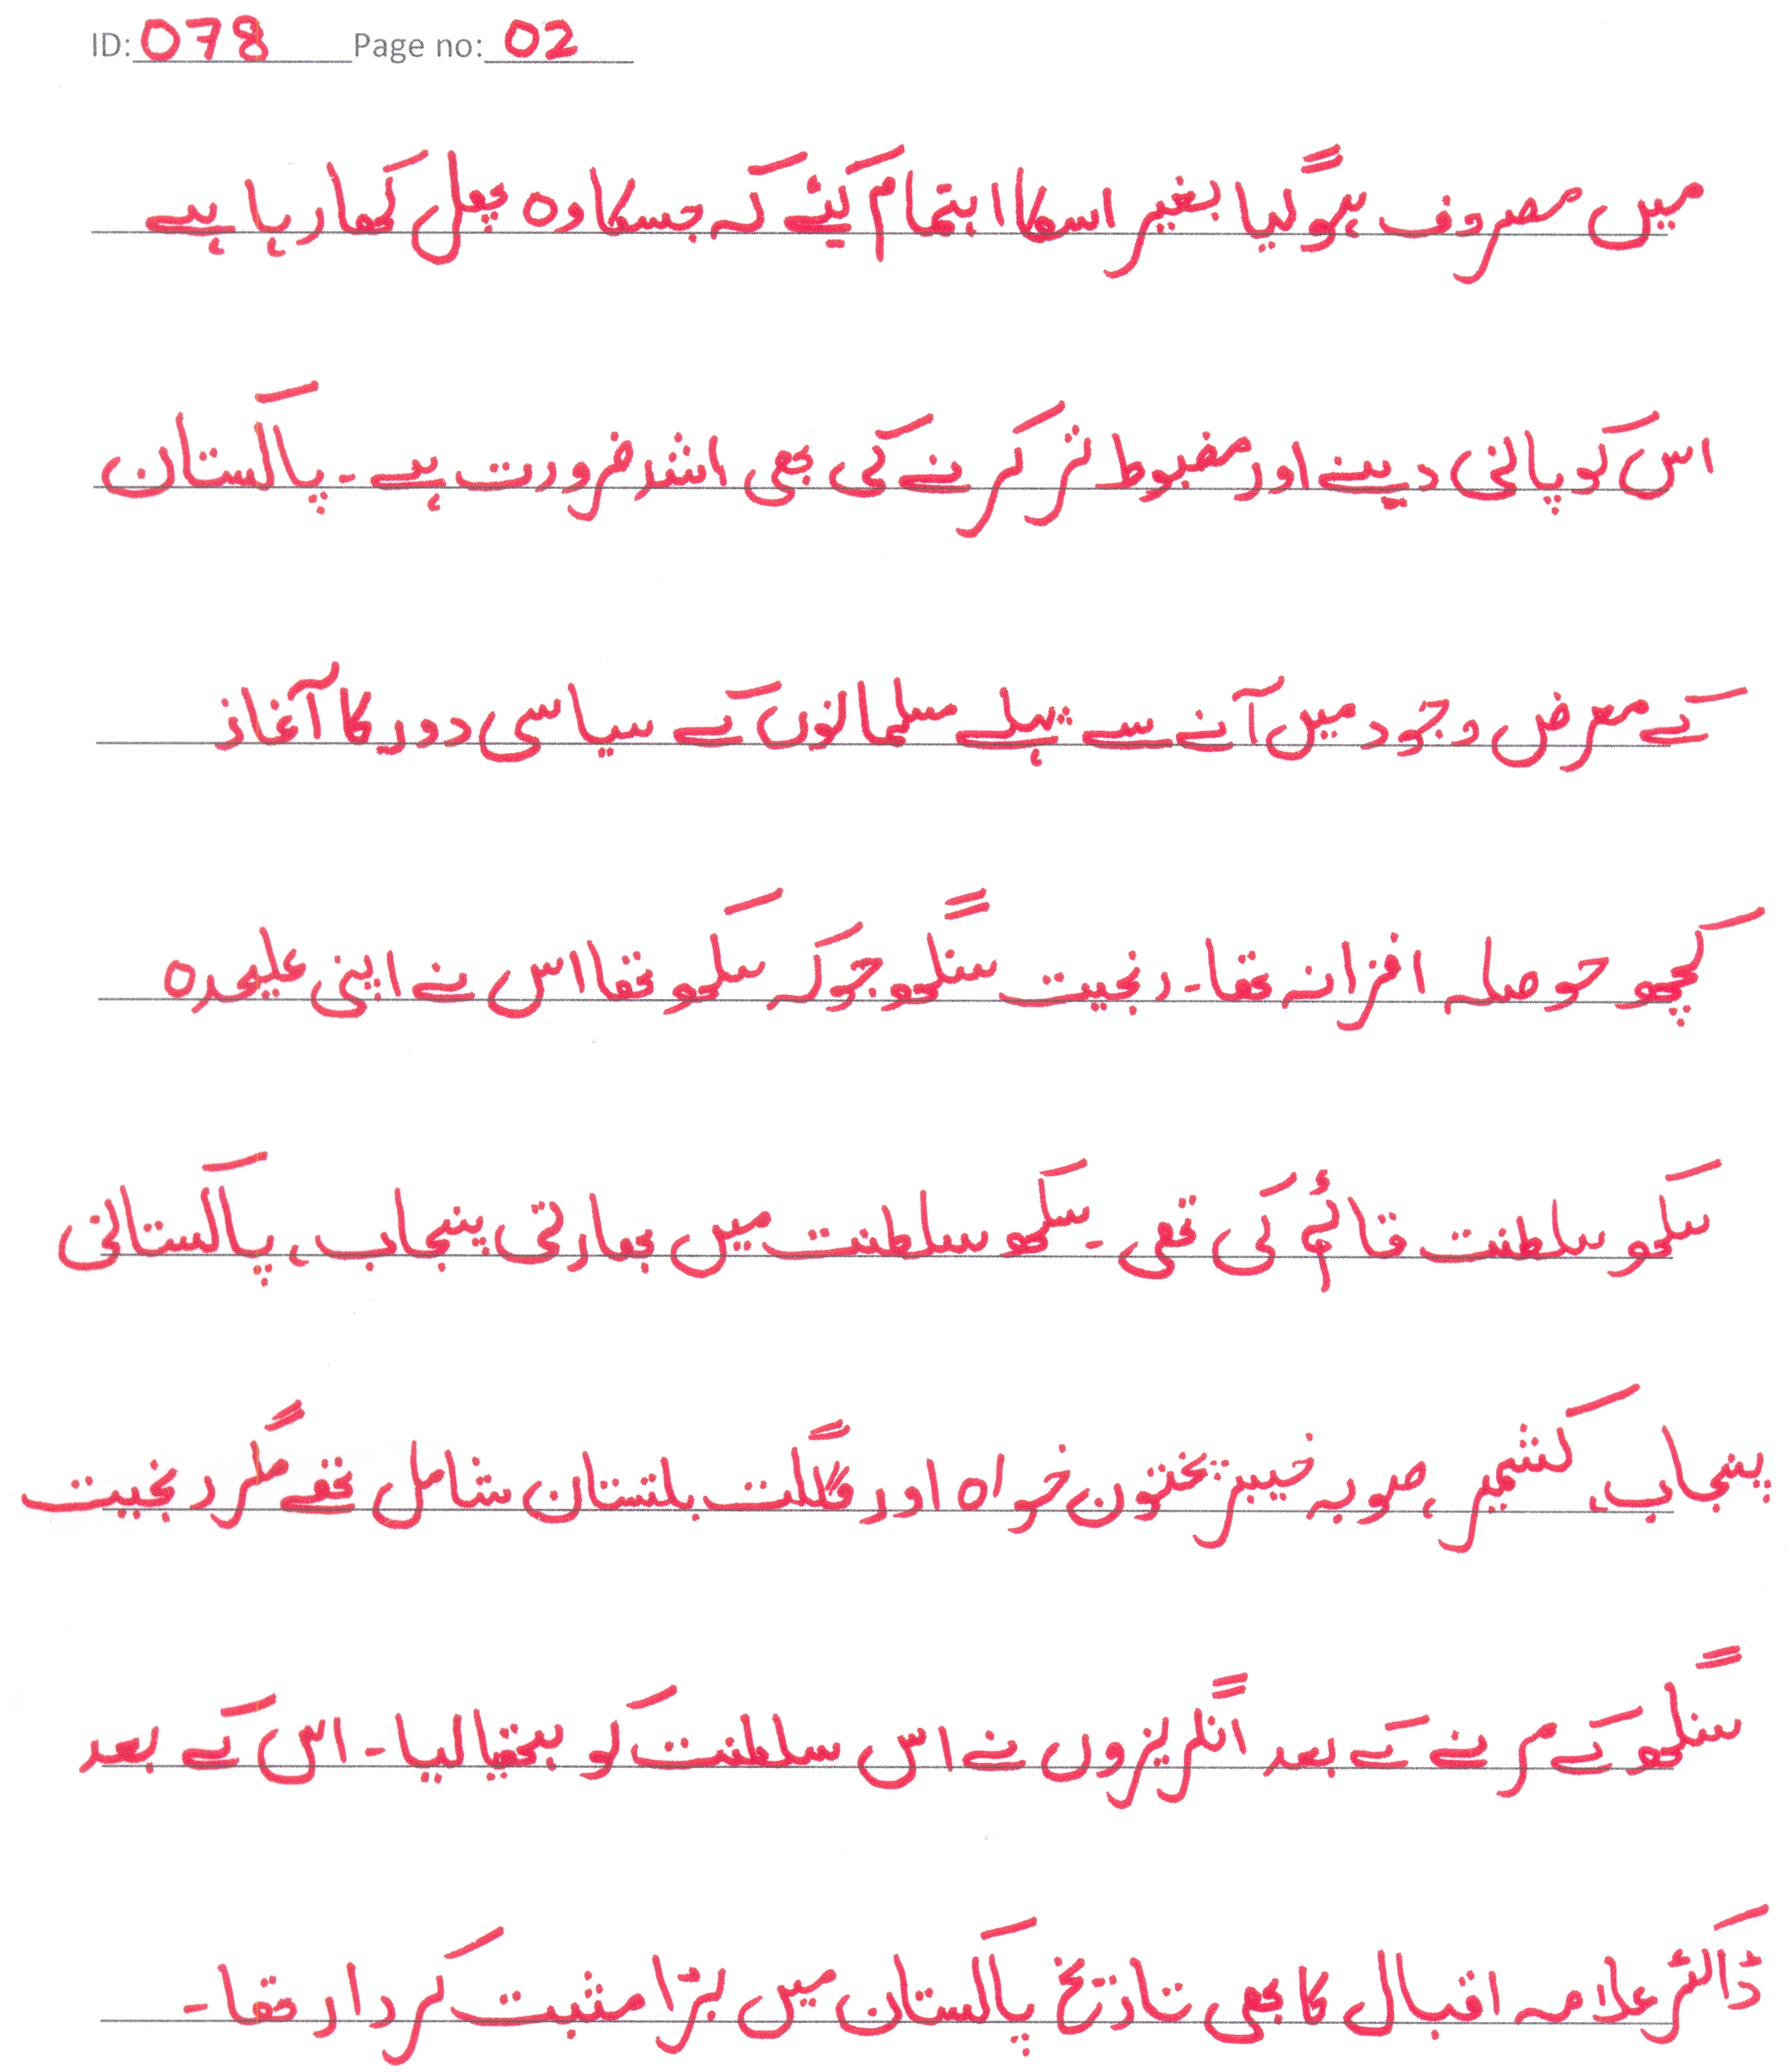 ID: 078 Page no: 02
میں مصروف ہوگیا بغیر اسکا اہتمام کیئے کہ جسکا وہ پھل کھا رہا ہے
اس کو پانی دینے اور مضبوط تر کرنے کی بھی اشد ضرورت ہے۔ پاکستان
کے معرض وجود میں آنے سے پہلے مسلمانوں کے سیاسی دور کا آغاز
کچھ حوصلہ افزا نہ تھا۔ رنجیت سنگھ جو کہ سکھ تھا اس نے اپنی علیحدہ
سکھ سلطنت قائم کی تھی۔ سکھ سلطنت میں بھارتی پنجاب، پاکستانی
پنجاب، کشمیر، صوبہ خیبر پختون خواہ اور گلگت بلتستان شامل تھے مگر رنجیت
سنگھ کے مرنے کے بعد انگریزوں نے اس سلطنت کو ہتھیا لیا۔ اس کے بعد
ڈاکٹر علامہ اقبال کا بھی تاریخ پاکستان میں بڑا مثبت کردار تھا۔